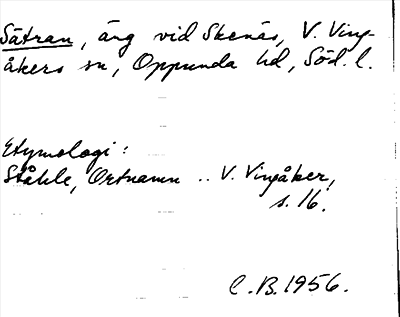 Sätran, äng vid Skenäs, V. Ving-
åkers sn, Oppunda hd, Söd. l.
Etymologi:
Ståhle, Ortnamn .. V. Vingåker,
s. 16.
C.B. 1956.